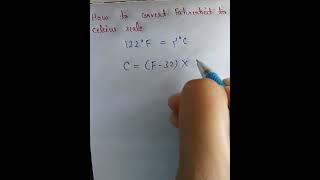 How to convert Fahrenheit to
celcius scale
122°F = ?°C
C = (F-32) ×